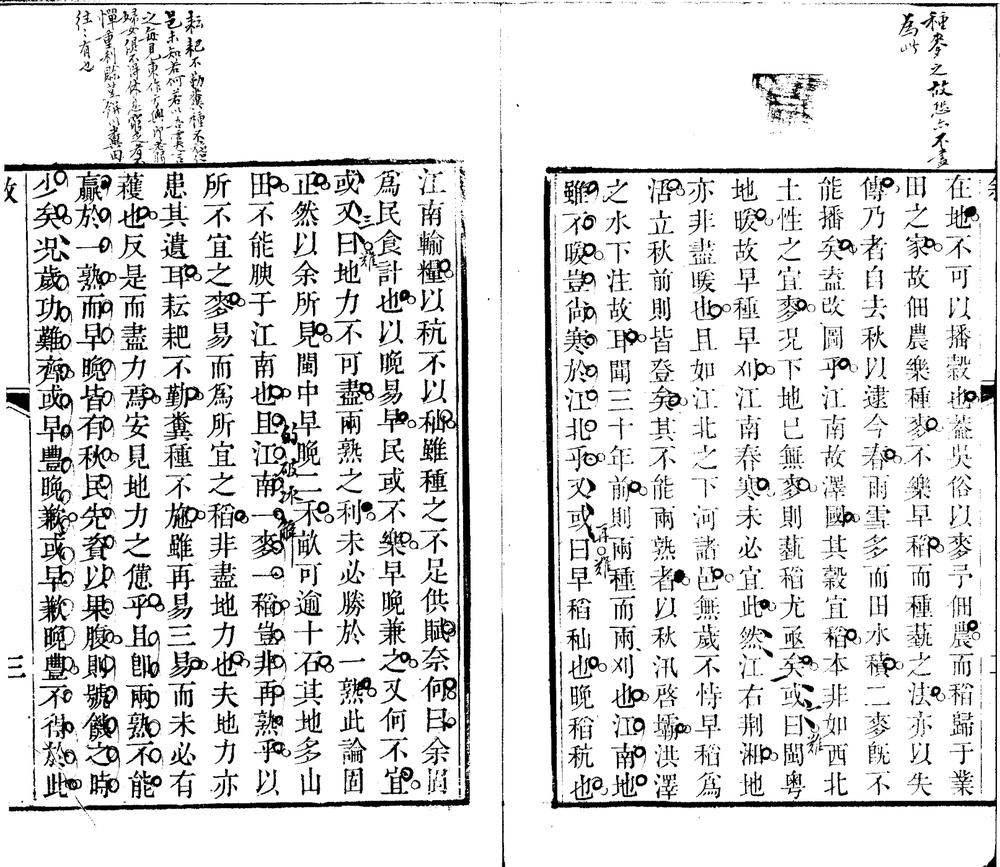 種麥之故恐亦不盡
為此
在地不可以播穀也葢吳俗以麥予佃農而稻歸于業
田之家故佃農樂種麥不樂早稻而種蓺之法亦以失
傳乃者自去秋以逮今春雨雪多而田水積二麥旣不
能播矣盍改圖乎江南故澤國其穀宜稻本非如西北
土性之宜麥況下地已無麥則蓺稻尤亟矣或曰閩粵
地暖故早種早刈江南春寒未必宜此然江右荆湘地
亦非盡暖也且如江北之下河諸邑無歲不恃早稻爲
活立秋前則皆登矣其不能兩熟者以秋汛啓壩洪澤
之水下注故耳聞三十年前則兩種而兩刈也江南地
雖不暖豈尙寒於江北乎又或曰早稻秈也晚稻秔也
二難
再難
江南輸糧以秔不以秈雖種之不足供賦奈何曰余固
爲民食計也以晚易早民或不樂早晚兼之又何不宜
或又曰地力不可盡兩熟之利未必勝於一熟此論固
正然以余所見閩中早晚二禾畝可逾十石其地多山
田不能腴于江南也且江南一麥一稻豈非再熟乎以
所不宜之麥易而爲所宜之稻非盡地力也夫地力亦
患其遺耳耘耙不勤糞種不施雖再易三易而未必有
穫也反是而盡力焉安見地力之憊乎且卽兩熟不能
贏於一熟而早晚皆有秋民先資以果腹則號饑之時
少矣況歲功難齊或早豐晚歉或早歉晚豐不得於此
三難
的破冰解
耘耙不勤糞種不施他
邑未知若何若以吾婁言
之每見東作方興卽老弱
婦女俱不得休息窮乏者不
憚重利賒荳餅以糞田
往往有也
三